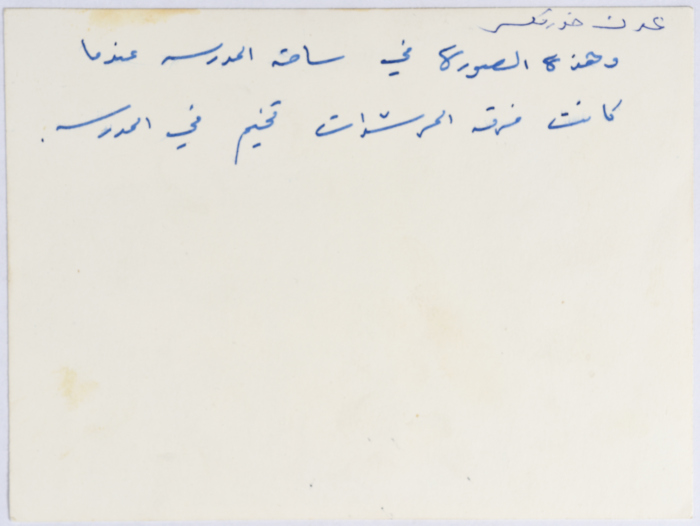 عدن خورمكسر
وهذه الصورة في ساحة المدرسه عندما
كانت فرقه المرشدات تخيم في المدرسه.